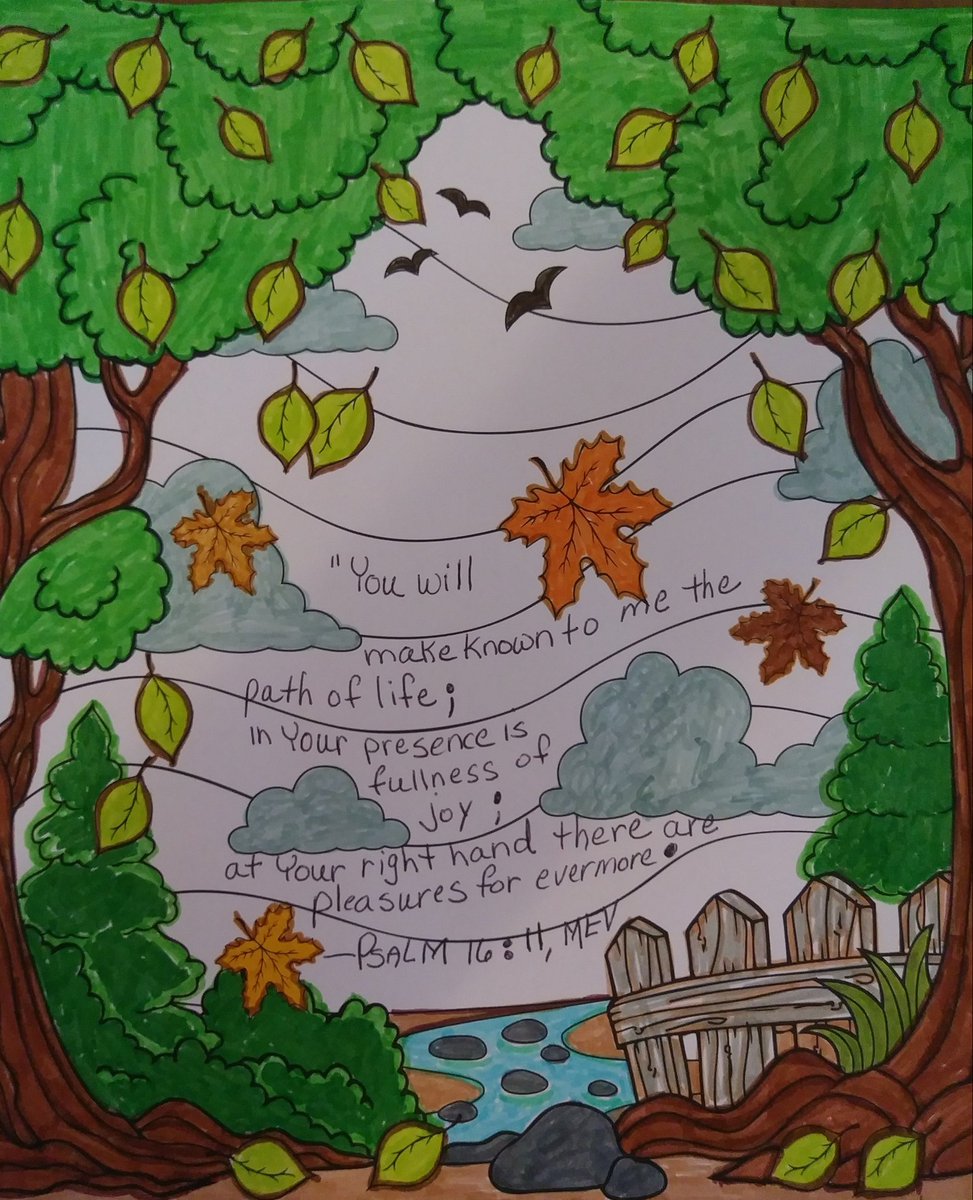 "You will
make known to me the
path of life;
in Your presence is
fullness of
joy;
at Your right hand there are
pleasures for evermore.
—PSALM 16:11, MEV